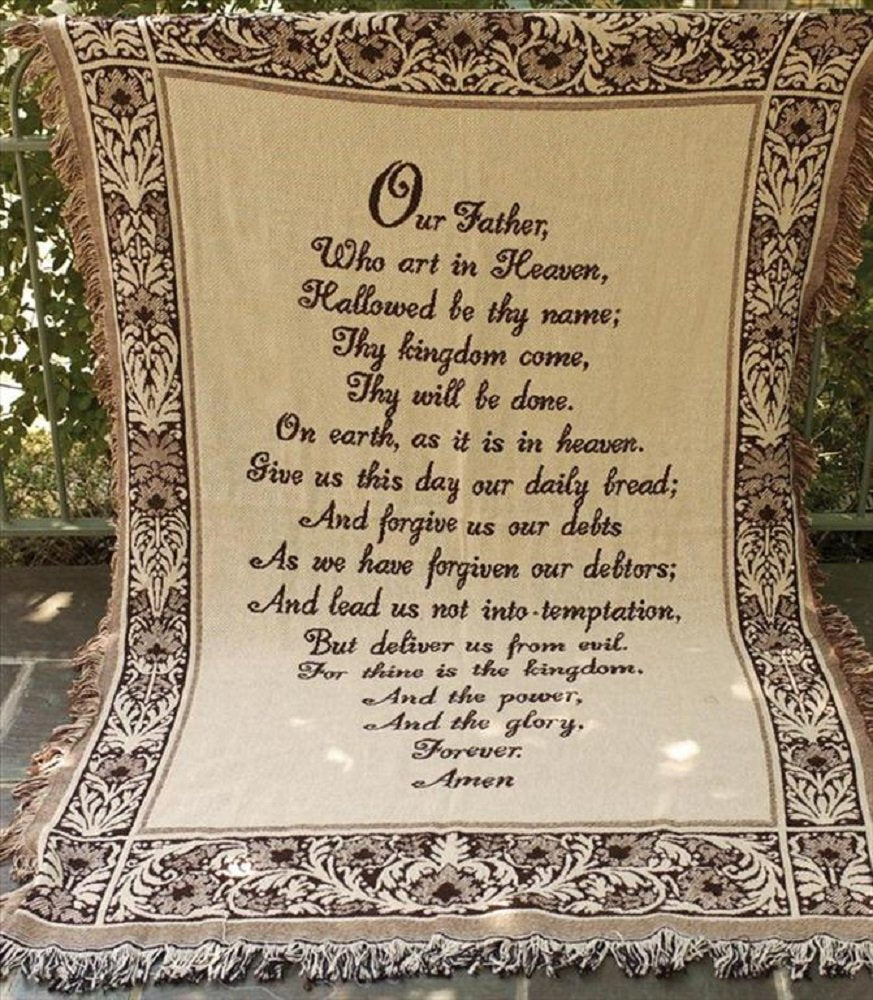 Our Father,
Who art in Heaven,
Hallowed be thy name;
Thy kingdom come,
Thy will be done.
On earth, as it is in heaven.
Give us this day our daily bread;
And forgive us our debts
As we have forgiven our debtors;
And lead us not into-temptation,
But deliver us from evil.
For thine is the kingdom.
And the power,
And the glory.
Forever.
Amen